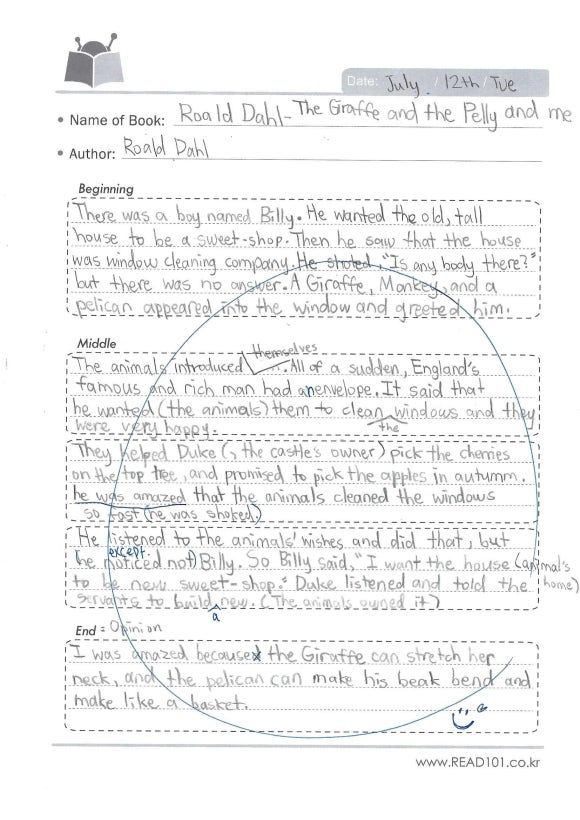 Date: July / 12th / Tue
• Name of Book: Roald Dahl - The Giraffe and the Pelly and me
• Author: Roald Dahl
Beginning
There was a boy named Billy. He wanted the old, tall
house to be a sweet-shop. Then he saw that the house
was window cleaning company. He shoted, "Is any body there?"
but there was no answer. A Giraffe, Monkey, and a
pelican appeared into the window and greeted him.
Middle
themselves
The animals introduced . All of a sudden, England's
famous and rich man had an envelope. It said that
he wanted (the animals) them to clean windows and they
the
were very happy.
They helped Duke (, the castle's owner) pick the cherries
on the top tree, and promised to pick the apples in autumm.
he was amazed that the animals cleaned the windows
so fast (he was shoked)
He listened to the animals' wishes and did that, but
except.
he noticed not) Billy. So Billy said, "I want the house (animal's
to be new sweet-shop." Duke listened and told the home)
servants to build new. (The animals owned it)
a
End = Opinion
I was amazed because the Giraffe can stretch her
neck, and the pelican can make his beak bend and
make like a basket.
www.READ101.co.kr